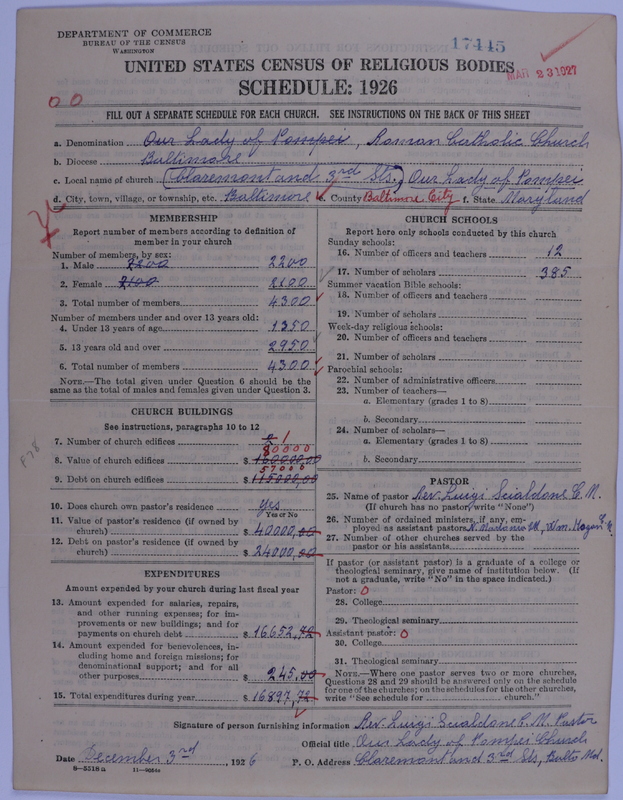 DEPARTMENT OF COMMERCE
BUREAU OF THE CENSUS
WASHINGTON
17445
MAR 23 1927
UNITED STATES CENSUS OF RELIGIOUS BODIES
SCHEDULE: 1926
FILL OUT A SEPARATE SCHEDULE FOR EACH CHURCH. SEE INSTRUCTIONS ON THE BACK OF THIS SHEET
a. Denomination Our Lady of Pompei, Roman Catholic Church
b. Diocese Baltimore
c. Local name of church (Claremont and 3rd Sts.) Our Lady of Pompei
d. City, town, village, or township, etc. Baltimore e. County Baltimore City f. State Maryland
MEMBERSHIP
Report number of members according to definition of
member in your church
Number of members, by sex:
1. Male 2200 2200
2. Female 2100 2100
3. Total number of members 4300
Number of members under and over 13 years old:
4. Under 13 years of age 1350
5. 13 years old and over 2950
6. Total number of members 4300
NOTE.—The total given under Question 6 should be the
same as the total of males and females given under Question 3.
CHURCH BUILDINGS
See instructions, paragraphs 10 to 12
7. Number of church edifices 2 1
80000
8. Value of church edifices $ 160000,00
57000
9. Debt on church edifices $ 115000,00
10. Does church own pastor's residence? Yes
Yes or No
11. Value of pastor's residence (if owned by
church) $ 40000,00
12. Debt on pastor's residence (if owned by
church) $ 24000,00
EXPENDITURES
Amount expended by your church during last fiscal year
13. Amount expended for salaries, repairs,
and other running expenses; for im-
provements or new buildings; and for
payments on church debt $ 16652,72
14. Amount expended for benevolences, in-
cluding home and foreign missions; for
denominational support; and for all
other purposes $ 245,00
15. Total expenditures during year $ 16897,72
CHURCH SCHOOLS
Report here only schools conducted by this church
Sunday schools:
16. Number of officers and teachers 12
17. Number of scholars 385
Summer vacation Bible schools:
18. Number of officers and teachers
19. Number of scholars
Week-day religious schools:
20. Number of officers and teachers
21. Number of scholars
Parochial schools:
22. Number of administrative officers
23. Number of teachers—
a. Elementary (grades 1 to 8)
b. Secondary
24. Number of scholars—
a. Elementary (grades 1 to 8)
b. Secondary
PASTOR
25. Name of pastor Rev. Luigi Scialdone C. M.
(If church has no pastor, write "None")
26. Number of ordained ministers, if any, em-
ployed as assistant pastors
27. Number of other churches served by the
pastor or his assistants
If pastor (or assistant pastor) is a graduate of a college or
theological seminary, give name of institution below. (If
not a graduate, write "No" in the space indicated.)
Pastor: 0
28. College
29. Theological seminary
Assistant pastor: 0
30. College
31. Theological seminary
NOTE.—Where one pastor serves two or more churches,
Questions 28 and 29 should be answered only on the schedule
for one of the churches; on the schedules for the other churches,
write "See schedule for church."
Signature of person furnishing information Rev. Luigi Scialdone C. M. Pastor
Official title Our Lady of Pompei Church
Date December 3rd, 1926 P. O. Address Claremont and 3rd Sts, Balto Md.
8-5518a